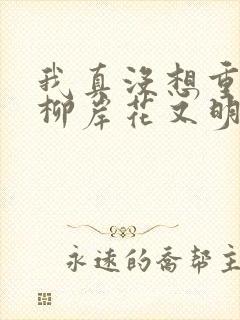 我真没想重
柳岸花又明
永远的乔帮主